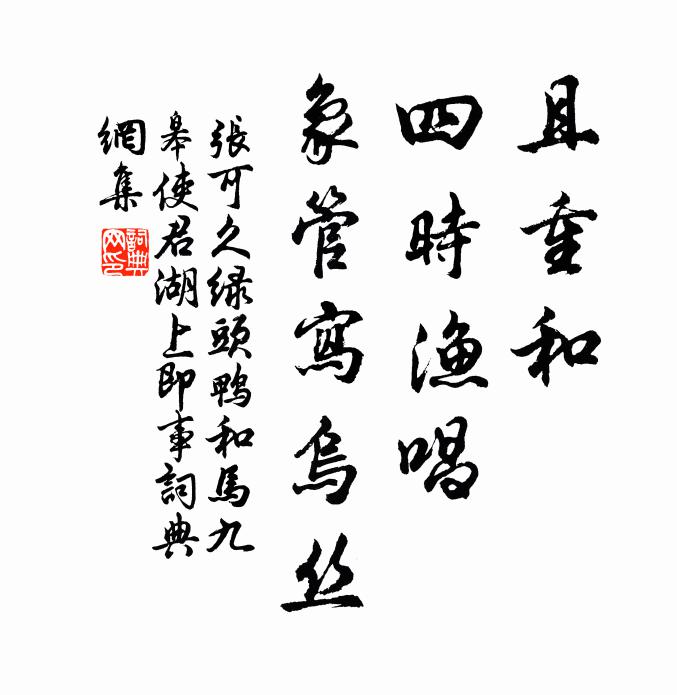 且重和
四時漁唱
象管寫烏丝
張可久緑頭鴨和馬九
皋使君湖上即事詞典
網集
詞典
网印